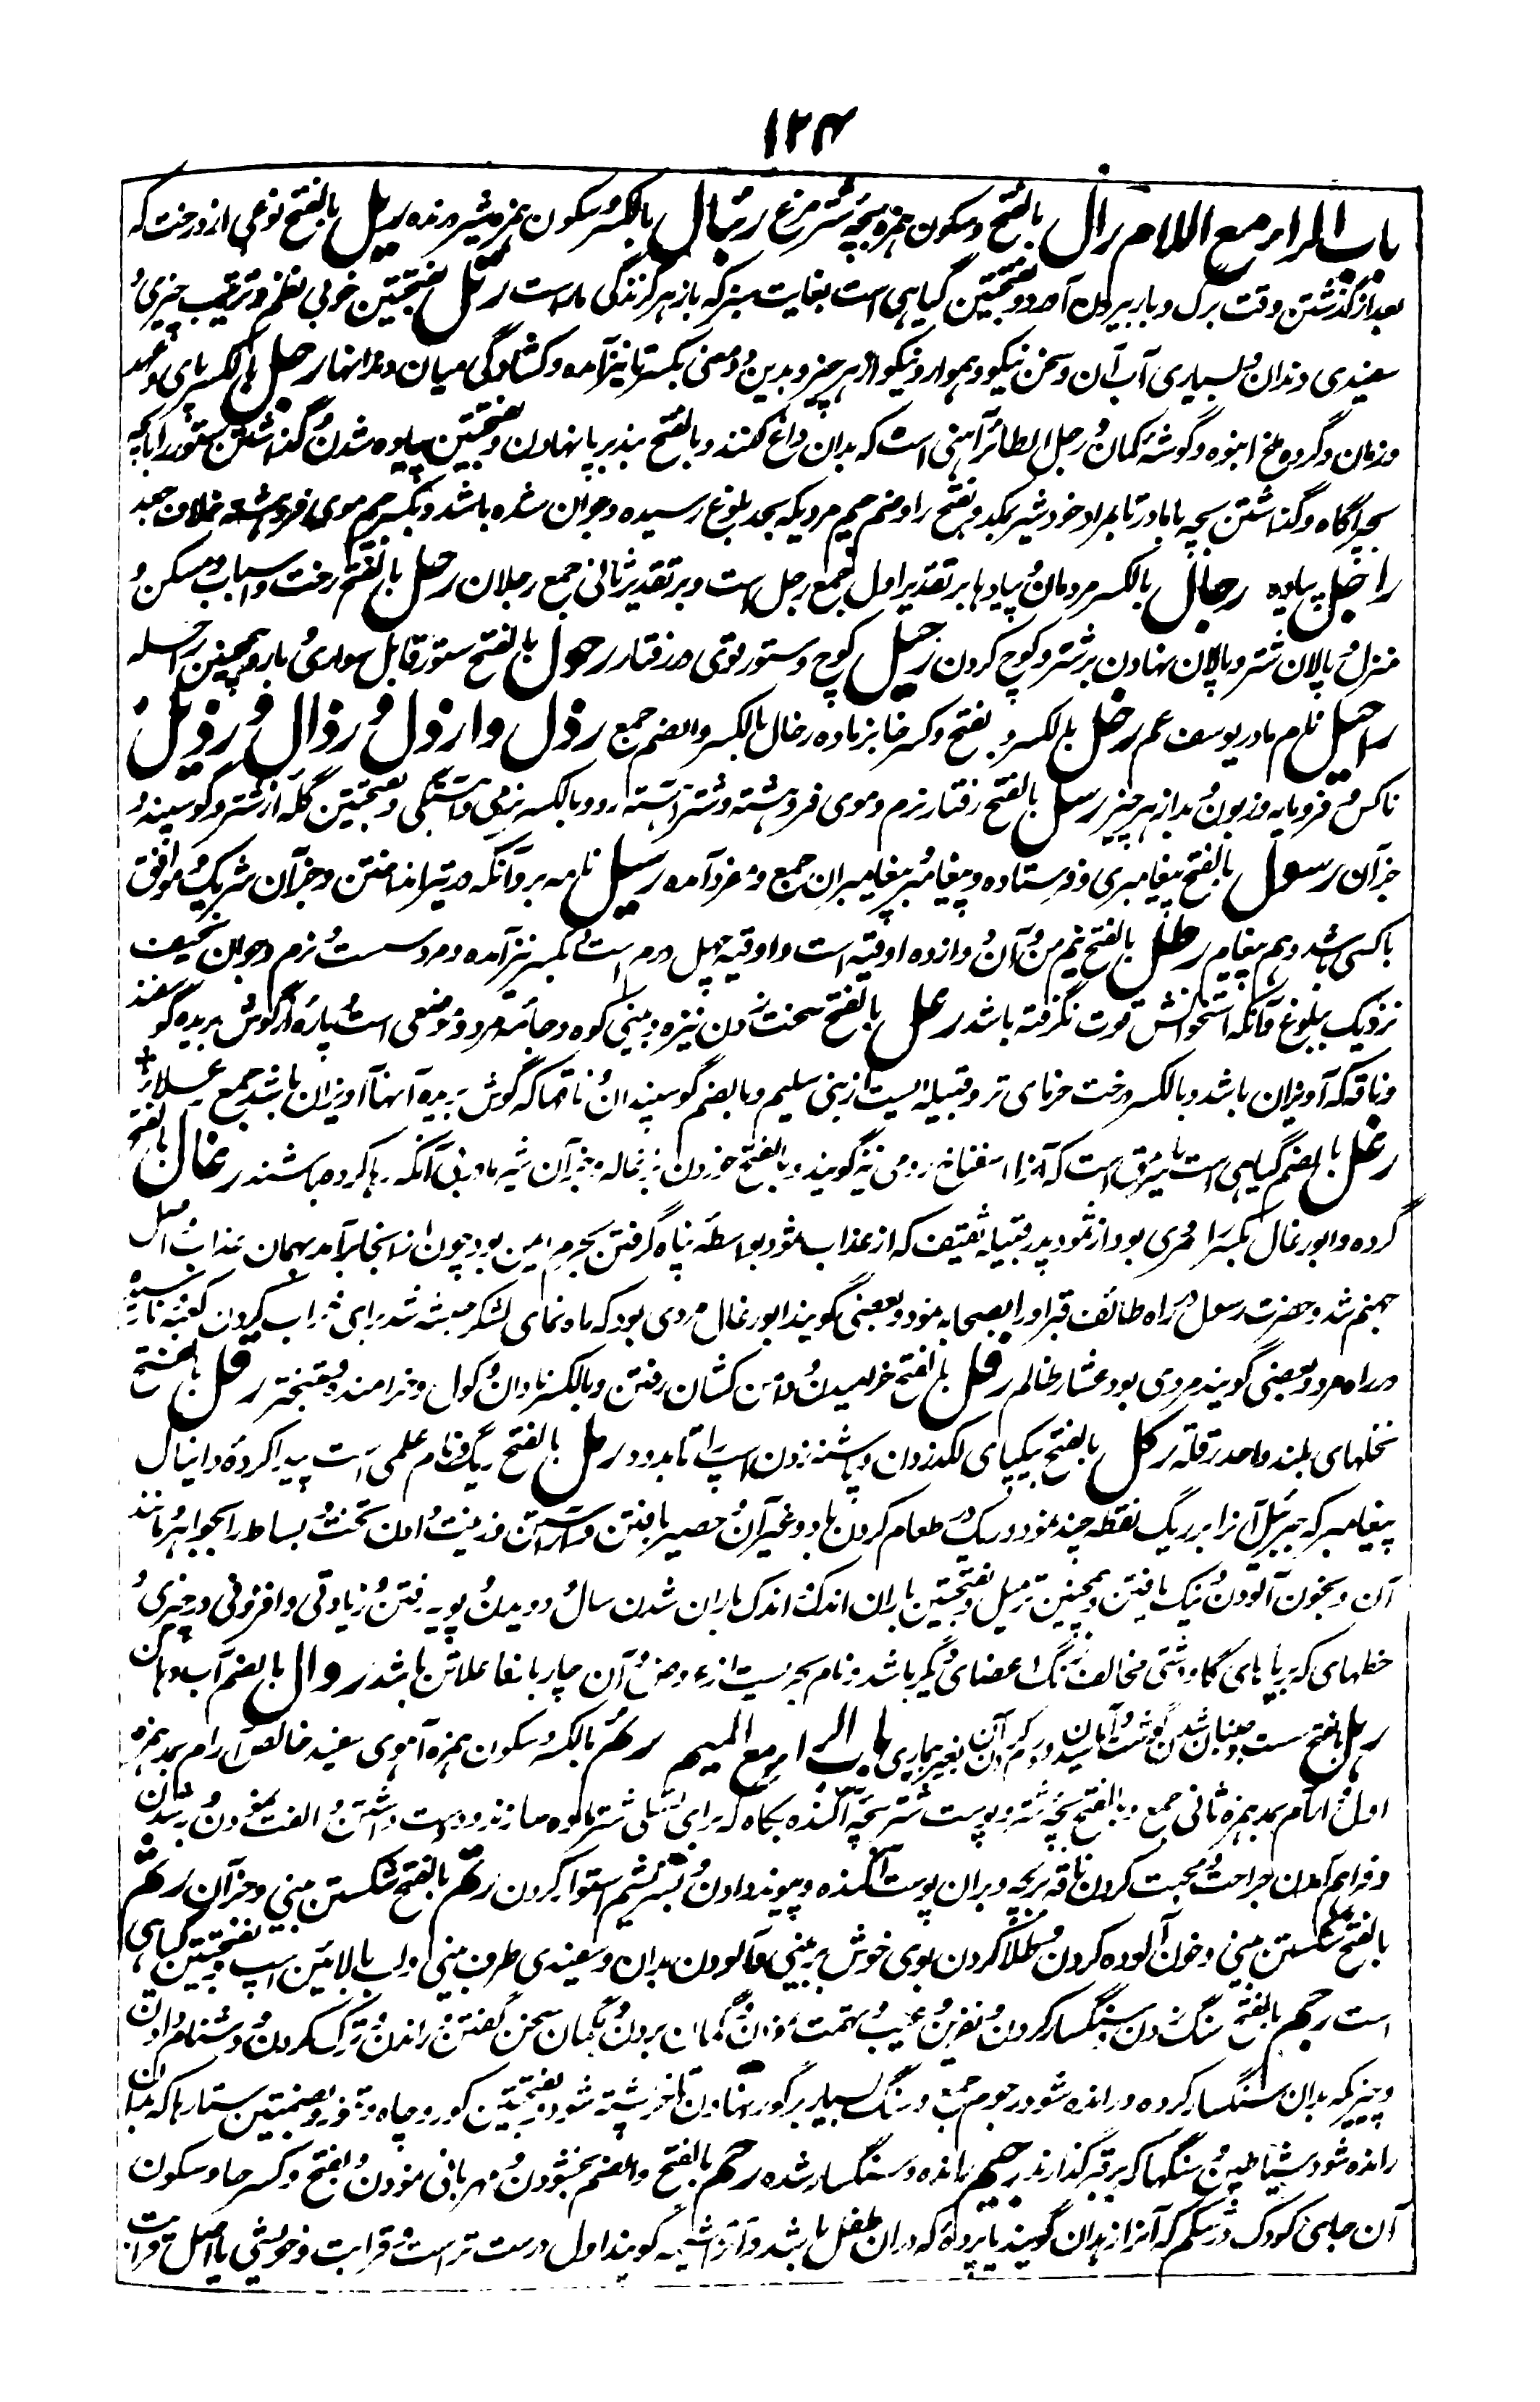 ۱۲۴
باب الراء مع اللام رال بالفتح و سکون همزه بچه شتر مرغ رئبال بالکسر و سکون همزه شیر درنده ربل بالفتح نوعی از درخت که
بعد از گذشتن وقت برگ و بار بیرون آرد و بفتحتین گیاهی است بغایت سبز که باز هر گزندگی مار است رتل بفتحتین خوبی نظم و ترتیب چیزی و
سفیدی دندان و بسیاری آب آن و سخن نیکو و هموار و نیکو از هر چیز و بدین دو معنی بکسر تا نیز آمده و کشادگی میان دندانها رجل بالکسر پای و عهد
و زمان و گروه ملخ انبوه و گوشه کمان و رجل الطائر آهنی است که بدان داغ کنند و بالفتح بند بر پا نهادن و بفتحتین پیاده شدن و گذاشتن ستور را با بچه
بچراگاه و گذاشتن بچه با مادر تا بمراد خود شیر بمکد و بفتح را و ضم جیم مردیکه بحد بلوغ رسیده و جوان شده باشد و بکسر جیم موی فروهشته خلاف جعد
راجل پیاده رجال بالکسر مردمان و پیادها بر تقدیر اول جمع رجل است و بر تقدیر ثانی جمع رجلان رحل بالفتح رخت و اسباب و مسکن و
منزل و پالان شتر و پالان نهادن بر شتر و کوچ کردن رحیل کوچ و ستور قوی در رفتار رحول بالفتح ستور قابل سواری و بار و همچنین راحله
راحیل نام مادر یوسف عم رخل بالکسر و بفتح و کسر خا بز ماده رخال بالکسر و الضم جمع رذل و ارذل و رذال و رذیل
ناکس و فرومایه و زبون و بد از هر چیز رسل بالفتح رفتار نرم و موی فروهشته و شتر آهسته رو و بالکسر نرمی و آهستگی و بفتحتین گله از شتر و گوسپند و
جز آن رسول بالفتح پیغامبری و فرستاده و پیغامبر و پیغامبران جمع و مفرد آمده رسیل نامه بر و آنکه در تیر انداختن و جز آن شریک و موافق
با کسی باشد و هم پیغام رطل بالفتح نیم من و آن دوازده اوقیه است و اوقیه چهل درم است و بکسر نیز آمده و مرد سست و نرم و جوان نحیف
نزدیک ببلوغ و آنکه استخوانش قوت نگرفته باشد رعل بالفتح سخت زدن نیزه و بینی کوه و جامه مرد و موضعی است و پاره از گوش بریده گوسفند
و ناقه که آویزان باشد و بالکسر درخت خرمای نر و قبیله ایست از بنی سلیم و بالضم گوسپندان و ناقها که گوش بریده آنها آویزان باشد جمع
رغل بالضم گیاهی است که آنرا اسفناخ رومی نیز گویند و بالفتح خوردن بزغاله و جز آن شیر مادر بی آنکه رها کرده باشند رغال بالفتح
گرده و ابو رغال بکسر را مردی بود از ثمود پدر قبیله ثقیف که از عذاب ثمود بواسطه پناه گرفتن بحرم ایمن بود چون از آنجا برآمد بهمان عذاب
جهنم شد و حضرت رسول در راه طائف قبر او را بصحابه نمود و بعضی گویند ابو رغال مردی بود که راه نمای لشکر حبشه شد برای خراب کردن کعبه تا
در راه مرد و بعضی گویند مردی بود عشار ظالم رفل بالفتح خرامیدن و دامن کشان رفتن و بالکسر نادان و کول و خرامنده و متبختر رقل بالفتح
نخلهای بلند واحد رقله رکل بالفتح بیکپای لگد زدن و پاشنه زدن اسپ را تا بدود رمل بالفتح ریگ و نام علمی است پیدا کرده دانیال
پیغامبر که جبرئیل آنرا بر ریگ نقطه چند نمود و ریگ در طعام کردن و بار و غیر آن و حصیر بافتن و آراستن و زینت دادن تخت و بساط را بجواهر و مانند
آن و بخون آلودن و نیک بافتن و همچنین ترمیل و بفتحتین باران اندک و اندک باران شدن سال و دویدن و پویه رفتن و زیادتی و افزونی در چیزی و
خطهای که بر پاهای گاو دشتی مخالف رنگ اعضای دیگر باشد و نام بحریست از عروض و آن چار بار فاعلاتن باشد روال بالضم آب دهان
رهل بالفتح سست و جنبان شدن گوشت و آماسیدن و ورم کردن آن بغیر بیماری باب الراء مع المیم رئم بالکسر و سکون همزه آهوی سفید خالص آرام بمد همزه
اول و ارآم بمد همزه ثانی جمع و بالفتح بچه شتر و پوست شتر بچه آگنده بکاه که برای تسلی شتر ماده سازند و دوست داشتن و الفت نمودن و
و فراهم آمدن جراحت و محبت کردن ناقه بر بچه و بر آن پوست آگنده و پیوند دادن و استوار کردن رتم بالفتح شکستن بینی و جز آن رثم
بالفتح شکستن بینی و خون آلوده کردن و طلا کردن بوی خوش بر بینی و آلودن بدان و سفیدی طرف بینی و لب بالائین اسپ و بفتحتین گیاهی
است رجم بالفتح سنگ زدن و سنگسار کردن و نفرین و عیب و تهمت و گمان بردن و بگمان سخن گفتن و راندن و ترک کردن و دشنام دادن
و چیزیکه بدان سنگسار کرده و رانده شود رجوم جمع و سنگ بسیار بر گور نهادن تا خرپشته شود و بفتحتین گور و چاه و تنور و بضمتین ستارها که بدان
رانده شود شیاطین و سنگها که بر قبر گذارند رجیم رانده و سنگسار شده رحم بالفتح و بالضم بخشودن و مهربانی نمودن و بفتح و کسر حا و سکون
آن جای کودک در شکم که آنرا زهدان گویند یا پرده که در آن طفل باشد و آنرا گویند و اول درست تر است و قرابت و خویشی یا اصل قرابت